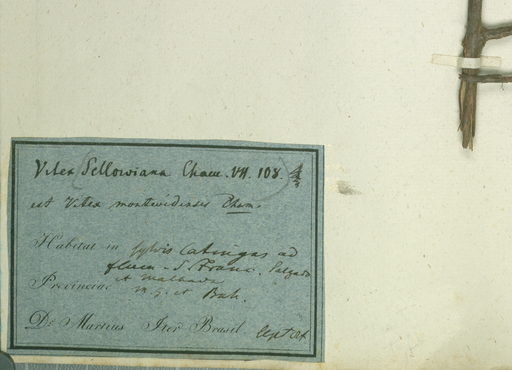 Vitex Sellowiana Cham. VII. 108.
est Vitex montevidensis Cham.
Habitat in sylvis Catingas ad
flum. S. Franc. Salgado
et Malhada
Provinciae M. G. et Bah.
Dr. Martius Iter Brasil.